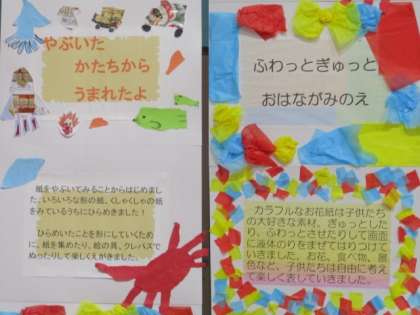 やぶいた
かたちから
うまれたよ
紙をやぶいてみることからはじめました。いろいろな形の紙、くしゃくしゃの紙
をみているうちにひらめきました！
ひらめいたことを形にしていくため
に、紙を集めたり、絵の具、クレパスで
ぬったりして楽しくえがきました。
ふわっとぎゅっと
おはながみのえ
カラフルなお花紙は子供たち
の大好きな素材。ぎゅっとした
り、ふわっとさせたりして画面
に液体のりをまぜてはりつけて
いきました。お花、食べ物、景
色など、子供たちは自由に考え
て楽しく表していきました。